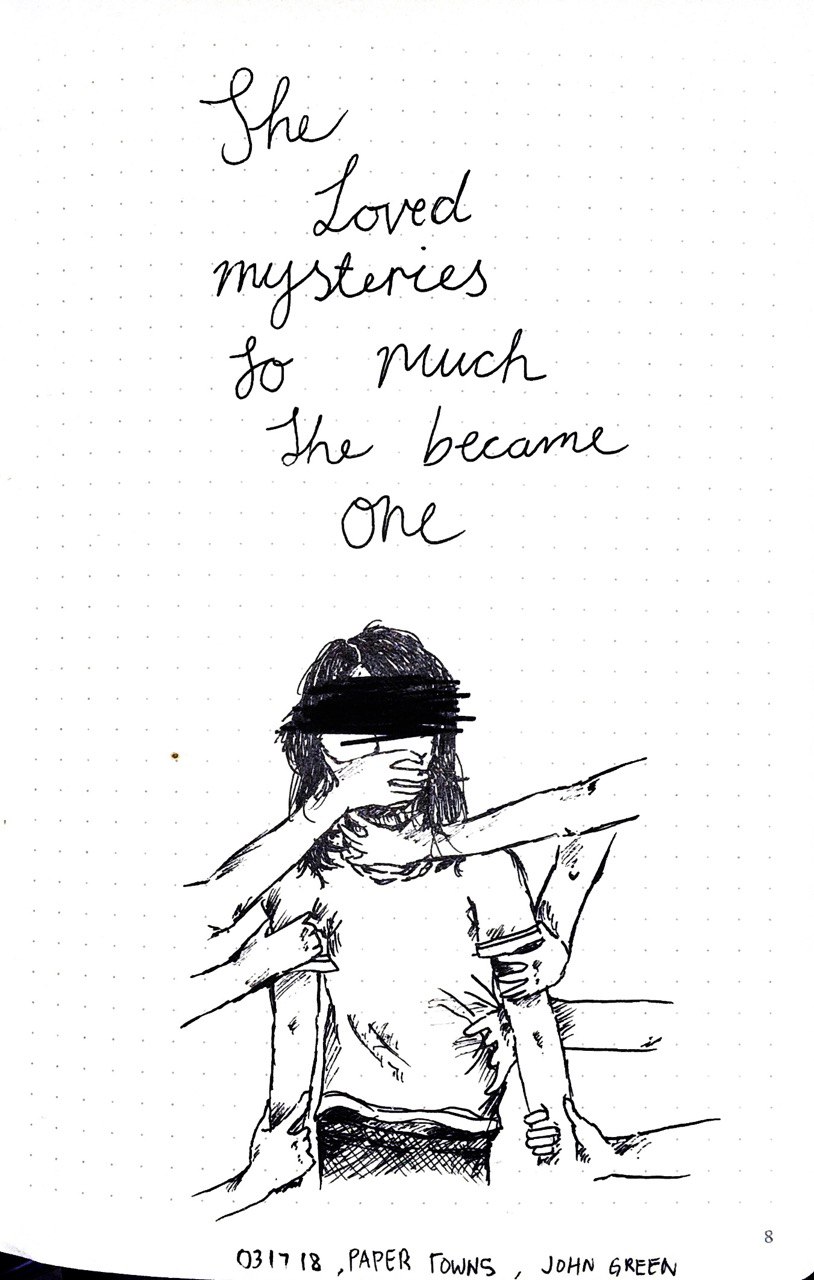 She
Loved
mysteries
So much
She became
One
8
031718, PAPER TOWNS, JOHN GREEN